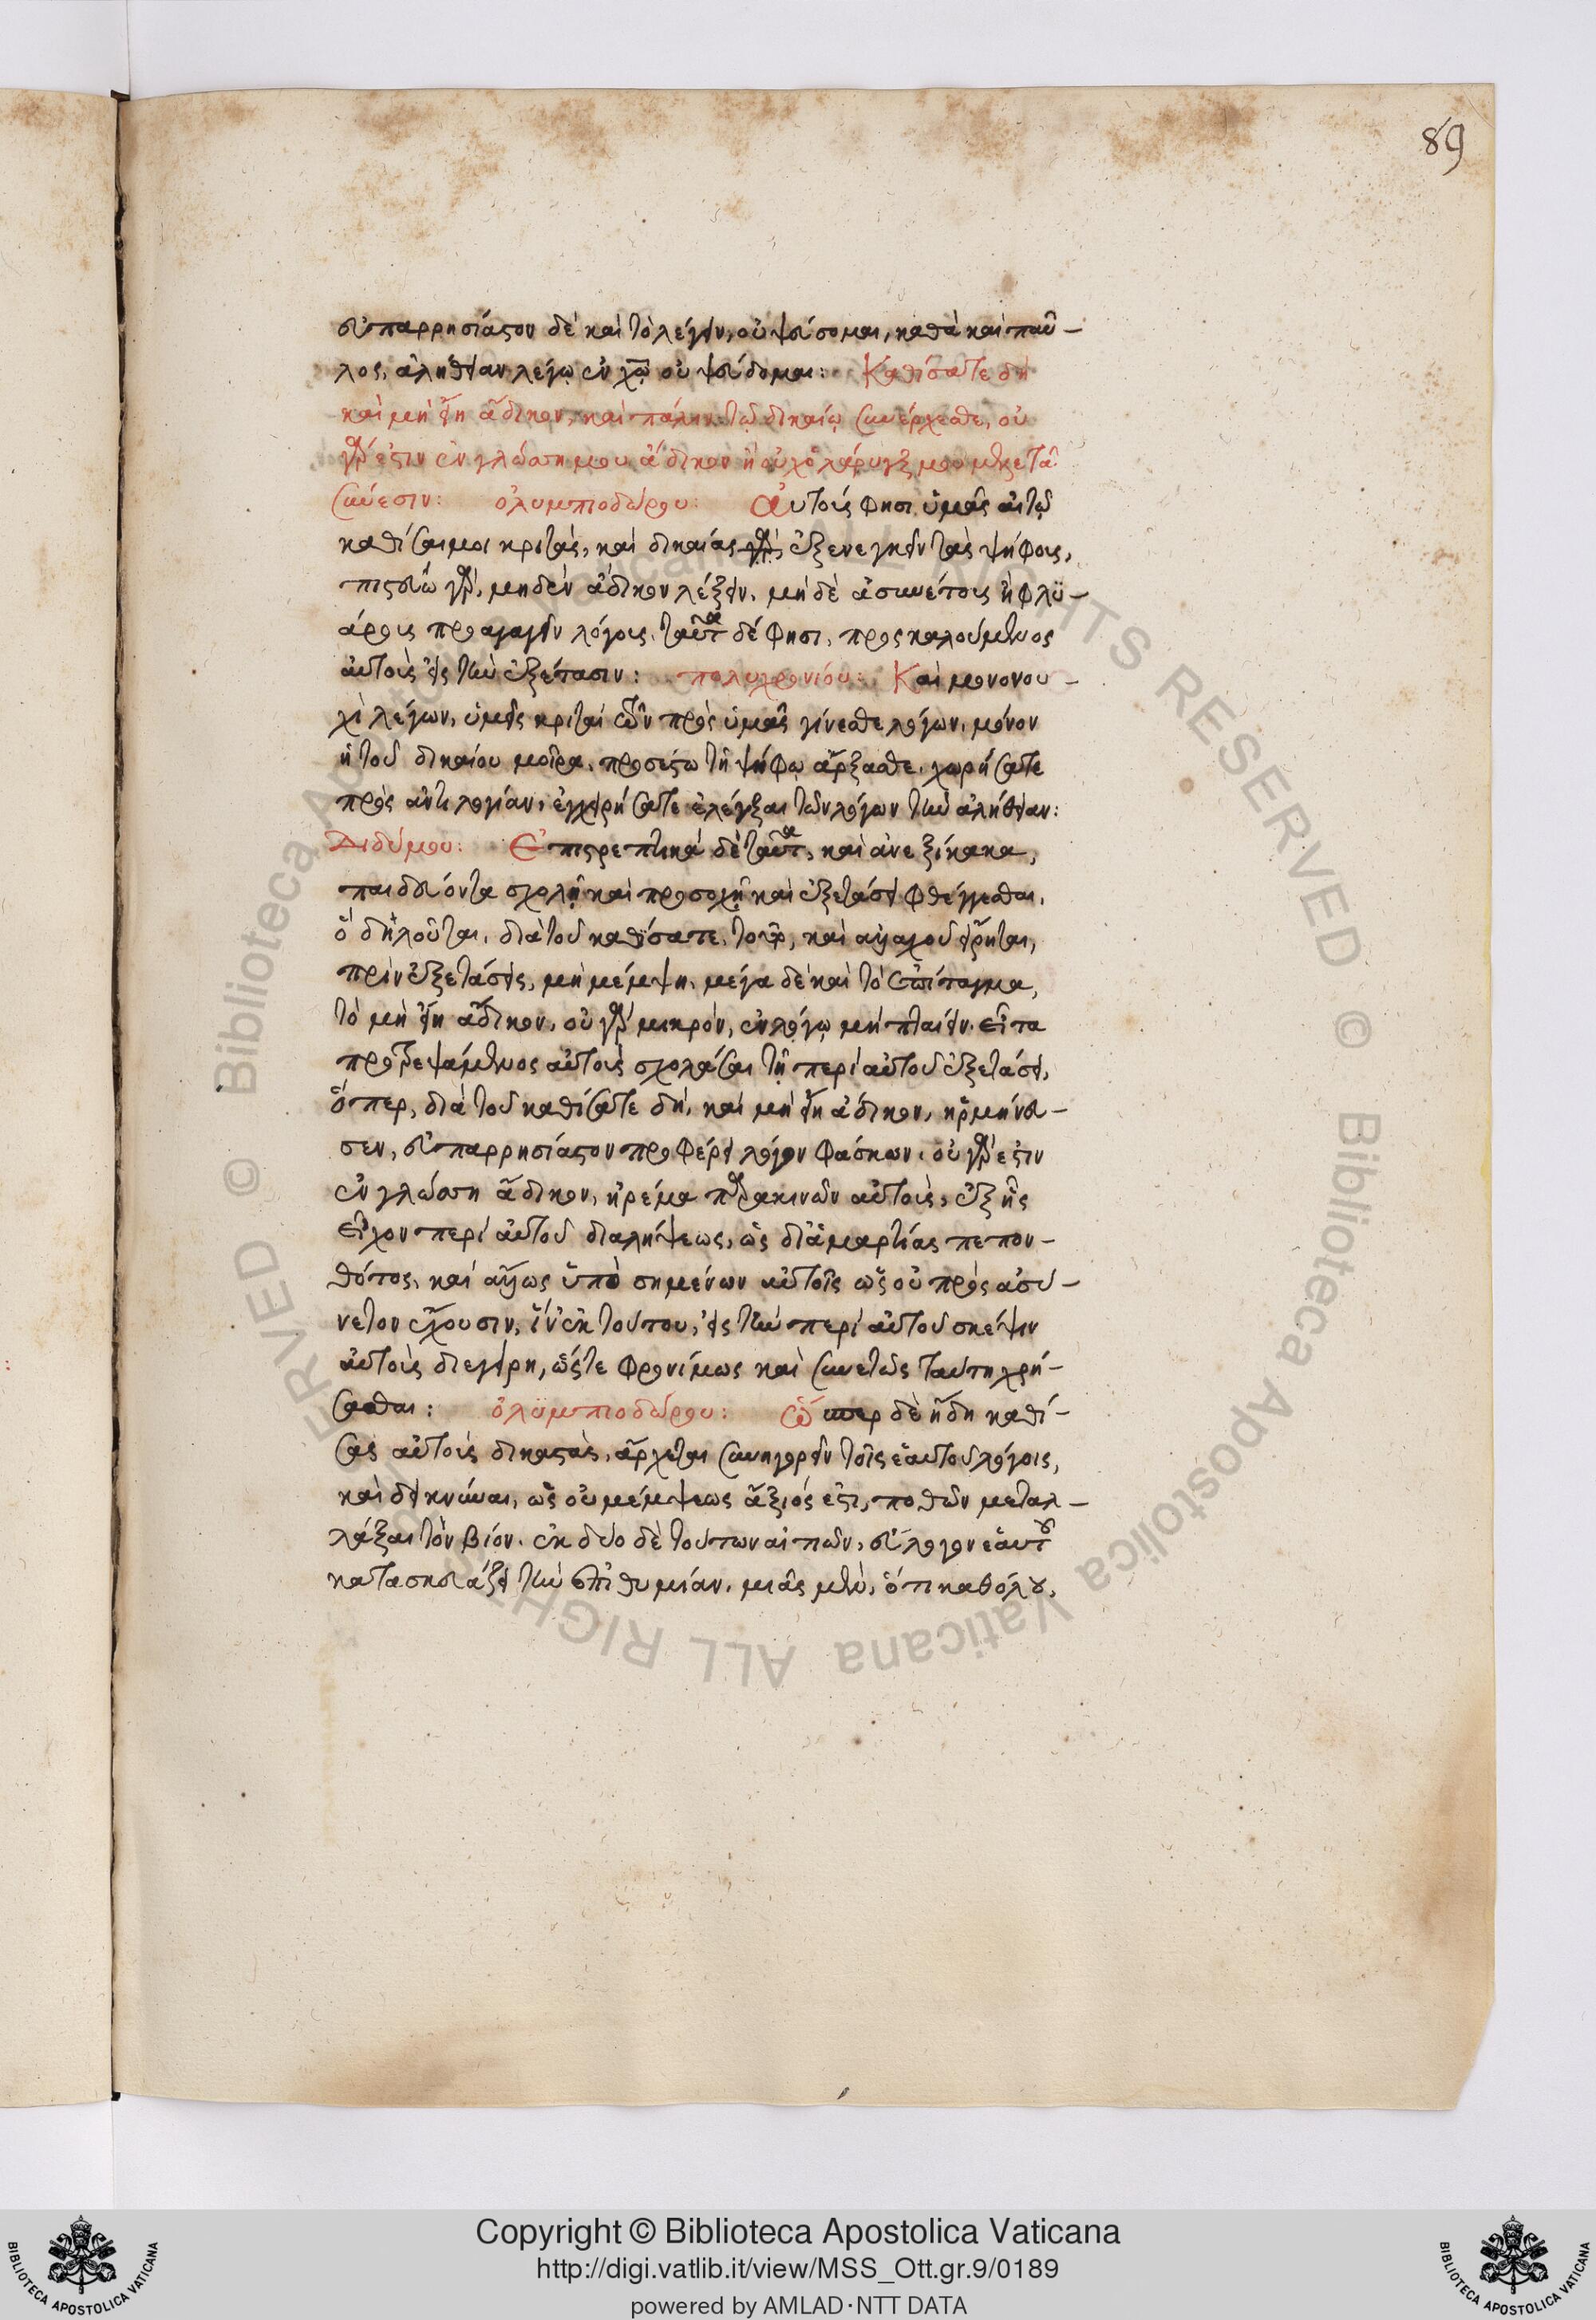 89
εὐπαρρησίαστον δὲ καὶ τὸ λέγειν, οὐ ψεύσομαι, καθὰ καὶ παῦ-
λος, ἀλήθειαν λέγω ἐν χῶ οὐ ψεύδομαι: Καθίσατε δὴ
καὶ μὴ εἴη ἄδικον, καὶ πάλιν τῶ δικαίω συνέρχεσθε, οὐ
γάρ ἐστιν ἐν γλώσση μου ἄδικον ἢ οὐχ ὁ λάρυγξ μου μελετᾶ
σύνεσιν: ὀλυμπιοδώρου: Αὐτούς φησι ὑμᾶς αἰτῶ
καθίσαι μοι κριτὰς, καὶ δικαίας ἐξενεγκεῖν τὰς ψήφους,
πιστεύω γὰρ, μηδὲν ἄδικον λέξειν, μὴ δὲ ἀσυνέτοις ἢ φλϋ-
άροις προαγαγεῖν λόγοις, ταῦτα δέ φησι, προσκαλούμενος
αὐτοὺς εἰς τὴν ἐξέτασιν: πολυχρονίου: Καὶ μονονου-
χὶ λέγων, ὑμεῖς κριταὶ τῶν πρὸς ὑμᾶς γίνεσθε λόγων, μόνον
ἡ τοῦ δικαίου μοῖρα, προσέστω τῆ ψήφω ἄρξασθε, χωρήσατε
πρὸς ἀντιλογίαν, ἐγχειρήσατε ἐλέγξαι τῶν λόγων τὴν ἀλήθειαν:
Διδύμου: Ἐπιστρεπτικὰ δὲ ταῦτα, καὶ ἀνεξίκακα,
παιδεύοντα σχολῆ καὶ προσοχῆ καὶ ἐξετάσει φθέγγεσθαι,
ὃ δηλοῦται, διὰ τοῦ καθίσατε, τοῦτο, καὶ ἀλλαχοῦ εἴρηται,
πρὶν ἐξετάσεις, μὴ μέμψη, μέγα δὲ καὶ τὸ ἐπίταγμα,
τὸ μὴ εἴη ἄδικον, οὐ γὰρ μικρὸν, ἐν λόγω μὴ πταίειν. εἶτα
προτρεψάμενος αὐτοὺς σχολάσαι τῆ περὶ αὐτοῦ ἐξετάσει,
ὅπερ, διὰ τοῦ καθίσατε δὴ, καὶ μὴ εἴη ἄδικον, ἡρμήνευ-
σεν, εὐπαρρησίαστον προφέρει λόγον φάσκων, οὐ γάρ ἐστιν
ἐν γλώσση ἄδικον, ἠρέμα παρακινῶν αὐτοὺς, ἐξ ἧς
εἶχον περὶ αὐτοῦ διαλήψεως, ὡς δι' ἁμαρτίας πεπον-
θότος, καὶ ἄλλως ὑπὸ σημαίνων αὐτοῖς ὡς οὐ πρὸς ἀσύ-
νετον ἔχουσιν, ἵν' ἐκ τούτου, εἰς τὴν περὶ αὐτοῦ σκέψιν
αὐτοὺς διεγείρη, ὥστε φρονίμως καὶ συνετῶς ταύτη χρή-
σασθαι: ὀλϋμπιοδώρου: Ὥσπερ δὲ ἤδη καθί-
σας αὐτοὺς δικαστὰς, ἄρχεται συνηγορεῖν τοῖς ἑαυτοῦ λόγοις,
καὶ δεικνύναι, ὡς οὐ μέμψεως ἄξιός ἐστι, ποθῶν μεταλ-
λάξαι τὸν βίον. ἐκ δύο δὲ τούτων αἰτιῶν, εὔλογον ἑαυτοῦ
κατασκευάζει τὴν ἐπιθυμίαν, μιᾶς μὲν, ὅτι καθόλου,
Copyright © Biblioteca Apostolica Vaticana
http://digi.vatlib.it/view/MSS_Ott.gr.9/0189
powered by AMLAD·NTT DATA